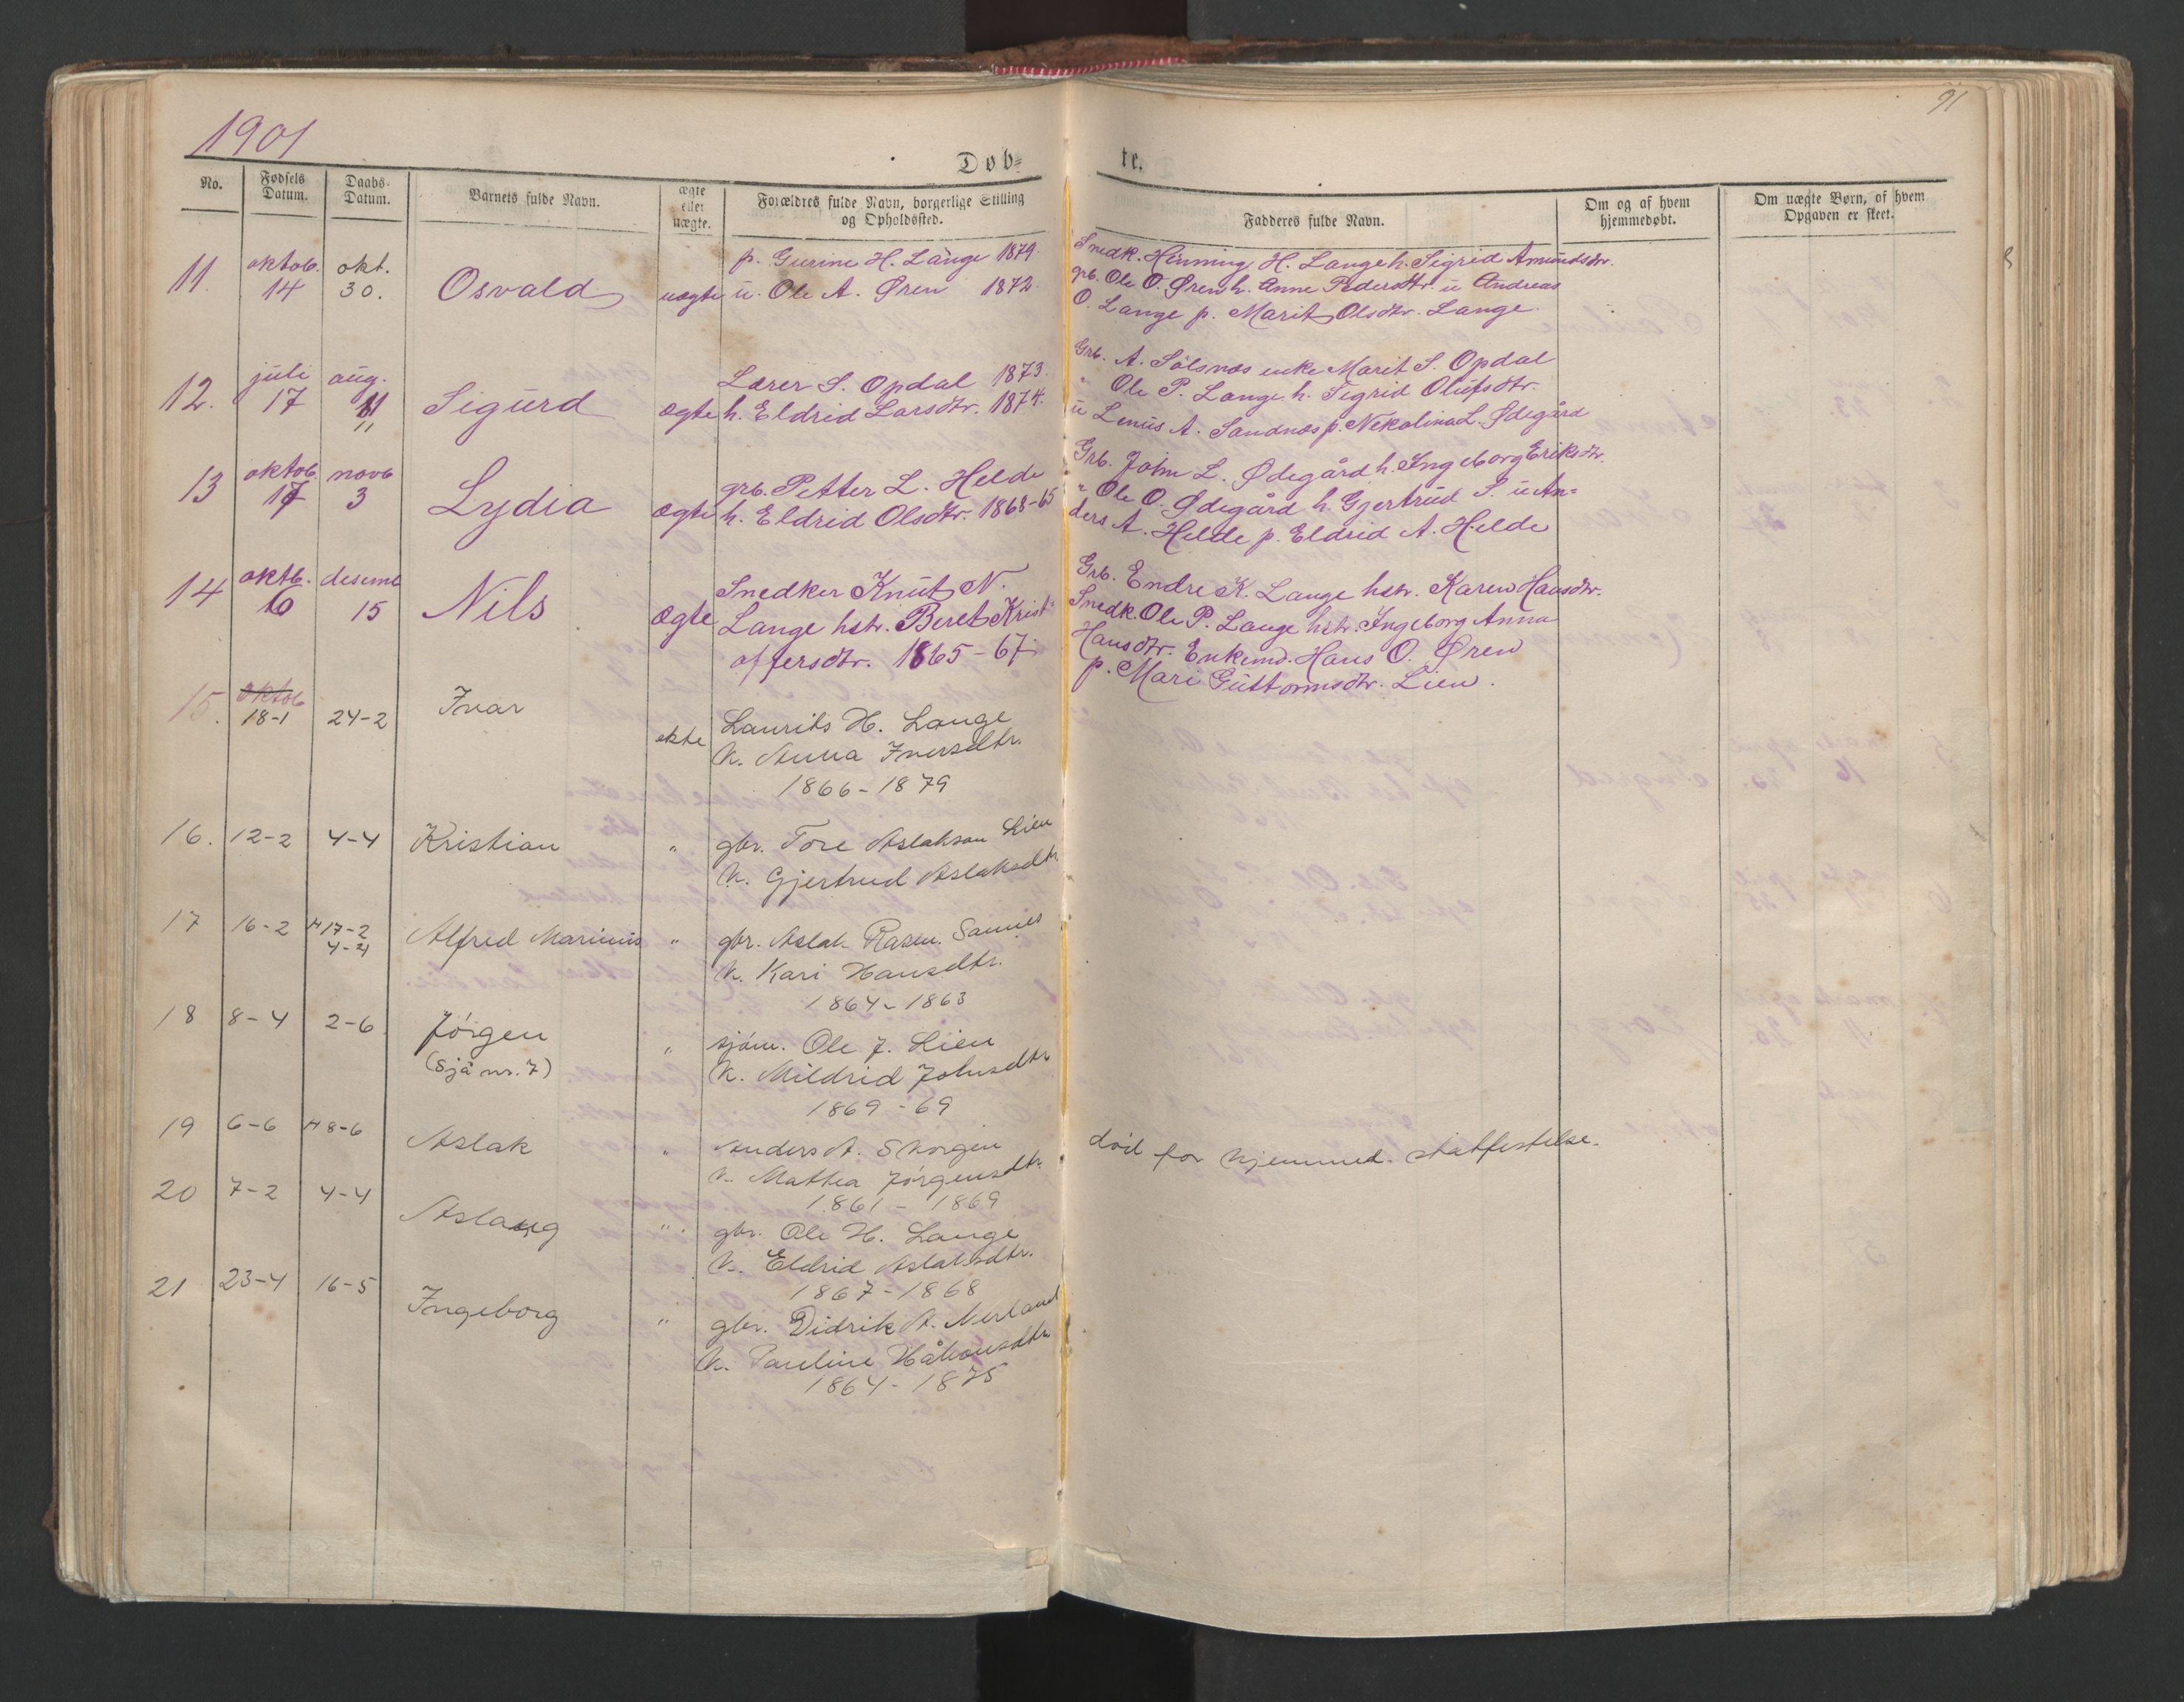 1901
91
Døb-
te.
No.
Fødsels Datum.
Daabs-Datum.
Barnets fulde Navn.
ægte eller uægte.
Forældres fulde Navn, borgerlige Stilling og Opholdssted.
Fadderes fulde Navn.
Om og af hvem hjemmedøbt.
Om uægte Børn, af hvem Opgaven er skeet.
11. oktob. 14 okt. 30. Osvald uægte
p. Gurine H. Lange 1879.
u. Ole A. Øren 1872.
Snedk. Henning H. Lange h. Sigrid Amundsdtr.
grb. Ole O. Øren h. Anne Pedersdtr. u Andreas
O. Lange p. Marit Olsdtr. Lange
12. juli 17 aug. 11 11 Sigurd ægte
Lærer S. Opdal 1873.
h. Eldrid Larsdtr. 1874.
Grb. A. Sølsnæs enke Marit S. Opdal
" Ole P. Lange h. Sigrid Olufsdtr.
u Lenus A. Sandnæs p. Nekolina L. Ødegård
13 oktob 17 novb 3 Lydia ægte
grb. Petter L. Helde
h. Eldrid Olsdtr. 1868-65
Grb. John L. Ødegård h. Ingeborg Eriksdtr.
" Ole O. Ødegård h. Gjertrud S. u An=
ders A. Helde p. Eldrid A. Helde
14 oktb. 6 desemb 15 Nils ægte
Snedker Knut N.
Lange hstr. Beret Krist-
offersdtr. 1865-67
Grb. Endre K. Lange hstr. Karen Hansdtr.
Snedk. Ole P. Lange hstr. Ingeborg Anna
Hansdtr. Enkemd. Hans O. Øren
p. Mari Guttormsdtr. Lien.
15. oktob 18-1 24-2 Ivar ekte
Laurits H. Lange
k. Anna Iversdtr.
1866-1879
16. 12-2 4-4 Kristian "
gbr. Tore Aslakson Lien
k. Gjertrud Aslaksdtr
17 16-2 H 17-2 4-4 Alfred Marinus "
gbr. Aslak Rasm. Sannes
k. Kari Hansdtr.
1864-1863
18 8-4 2-6 Jørgen "
(Sjå nr. 7)
sjøm. Ole J. Lien
k. Mildrid Johnsdtr
1869-69
19 6-6 H 8-6 Aslak "
Anders A. Skorgen
k. Mathea Jørgensdtr.
1861-1869
død før hjemmed. stadfestelse.
20 7-2 4-4 Aslaug "
gbr. Ole H. Lange
k. Eldrid Aslaksdtr.
1867-1868
21 23-4 16-5 Ingeborg "
gbr. Didrik A. Nerland
k. Pauline Håkonsdtr
1864-1875